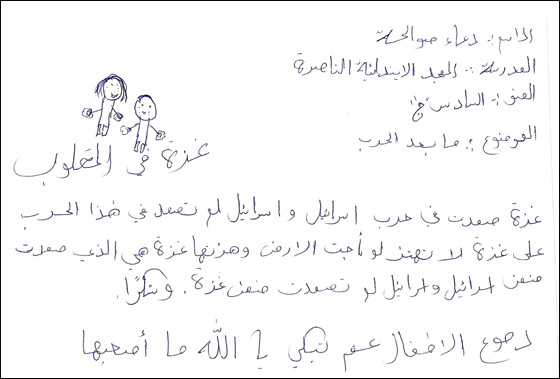 الاسم: دعاء صوالحة
المدرسة: المجد الابتدائية الناصرة
الصف: السادس "ج"
الموضوع: ما بعد الحرب
غزة في القلوب
غزة صمدت في حرب اسرائيل واسرائيل لم تصمد في هذا الحرب
على غزة لا تهتز لو ماجت الارض وهزتها غزة هي الذي صمدت
ضمن اسرائيل واسرائيل لم تصمدت ضمن غزة. وشكرًا.
دموع الاطفال عم تبكي يا الله ما أصعبها